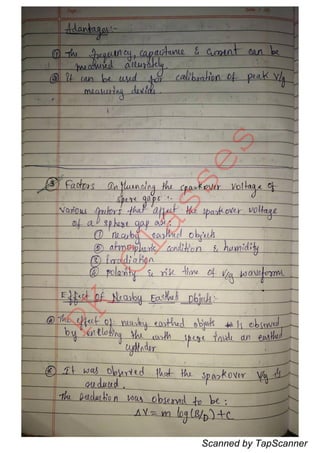 Adantages:-
① The frequency, capacitance & current can be
measured accurately.
② It can be used for calibration of peak v/g
measuring device.
③ Factors influencing the sparkover voltage of
spere gaps :-
Various fators that affect the sparkover voltage
of a sphere gap are:
① nearby earthed objects
② atmospheric condition & humidity
③ Irradiation
④ polarity & rise time of v/g waveforms
Effect Of Nearby Earthed Objects:-
The effect of nearby earthed objects is observed
by enclosing the earth spere inside an earthed
cylinder
It was observed that the sparkover v/g is
reduced.
The reduction was observed to be:
ΔV = m log(B/D) + C
RK Classes
Scanned by TapScanner